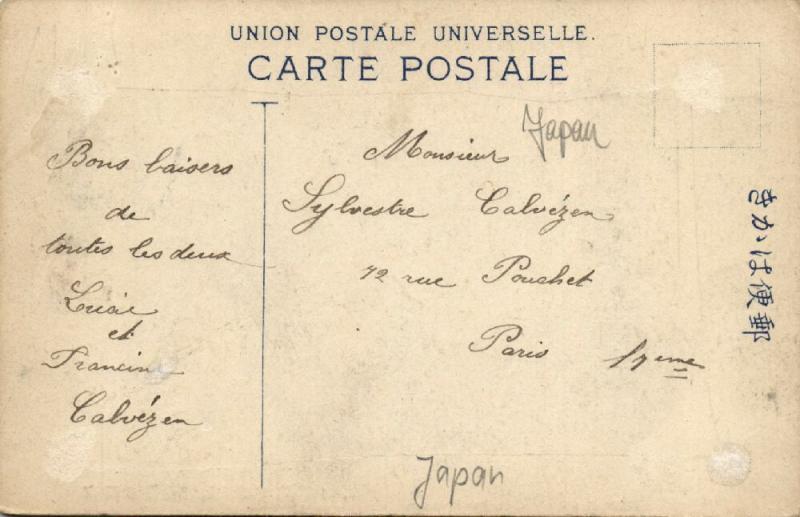 UNION POSTALE UNIVERSELLE.
CARTE POSTALE
Japan
Bons baisers
de
toutes les deux
et
Francine
Calvézen
Monsieur
Sylvestre Calvézen
72 rue Pouchet
Paris 17eme
きかは便郵
Japan